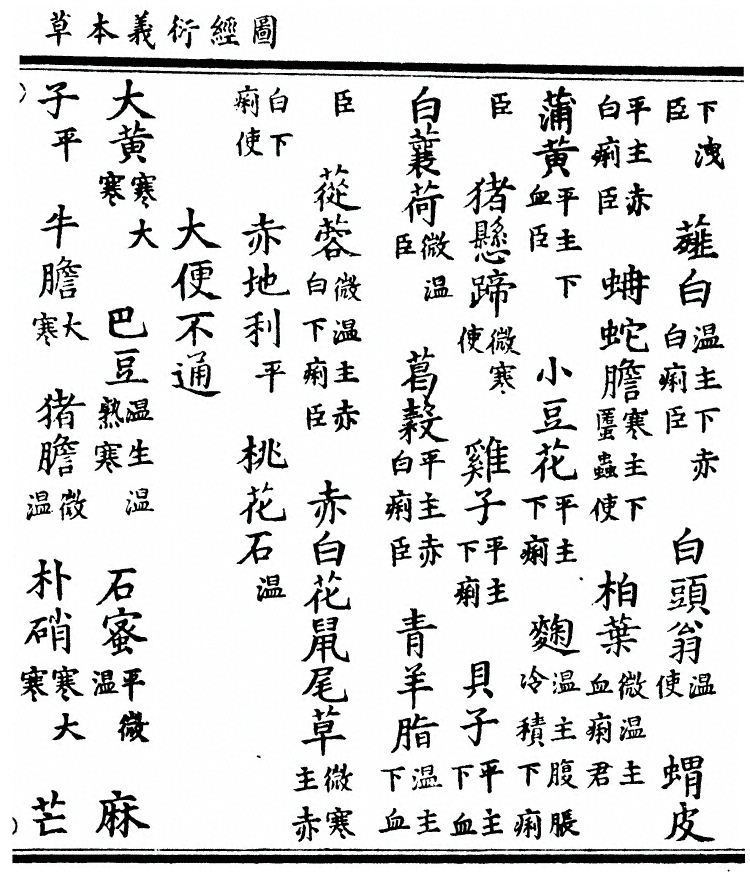 圖經衍義本草
下洩臣 薤白 温主下赤白痢臣 白頭翁 温使 蝟皮
平主赤白痢臣 蚺蛇膽 寒主下䘌蟲使 柏葉 微温主血痢君
蒲黄 平主下血臣 小豆花 平主下痢 麴 温主腹脹冷積下痢
臣 猪懸蹄 微寒使 雞子 平主下痢 貝子 平主下血
白蘘荷 微温臣 葛穀 平主赤白痢臣 青羊脂 温主下血
臣 蓯蓉 微温主赤白下痢臣 赤白花鼠尾草 微寒主赤
白下痢使 赤地利 平 桃花石 温
大便不通
大黄 寒大寒 巴豆 温生温熟寒 石蜜 平微温 麻
子 平 牛膽 大寒 猪膽 微温 朴硝 寒大寒 芒